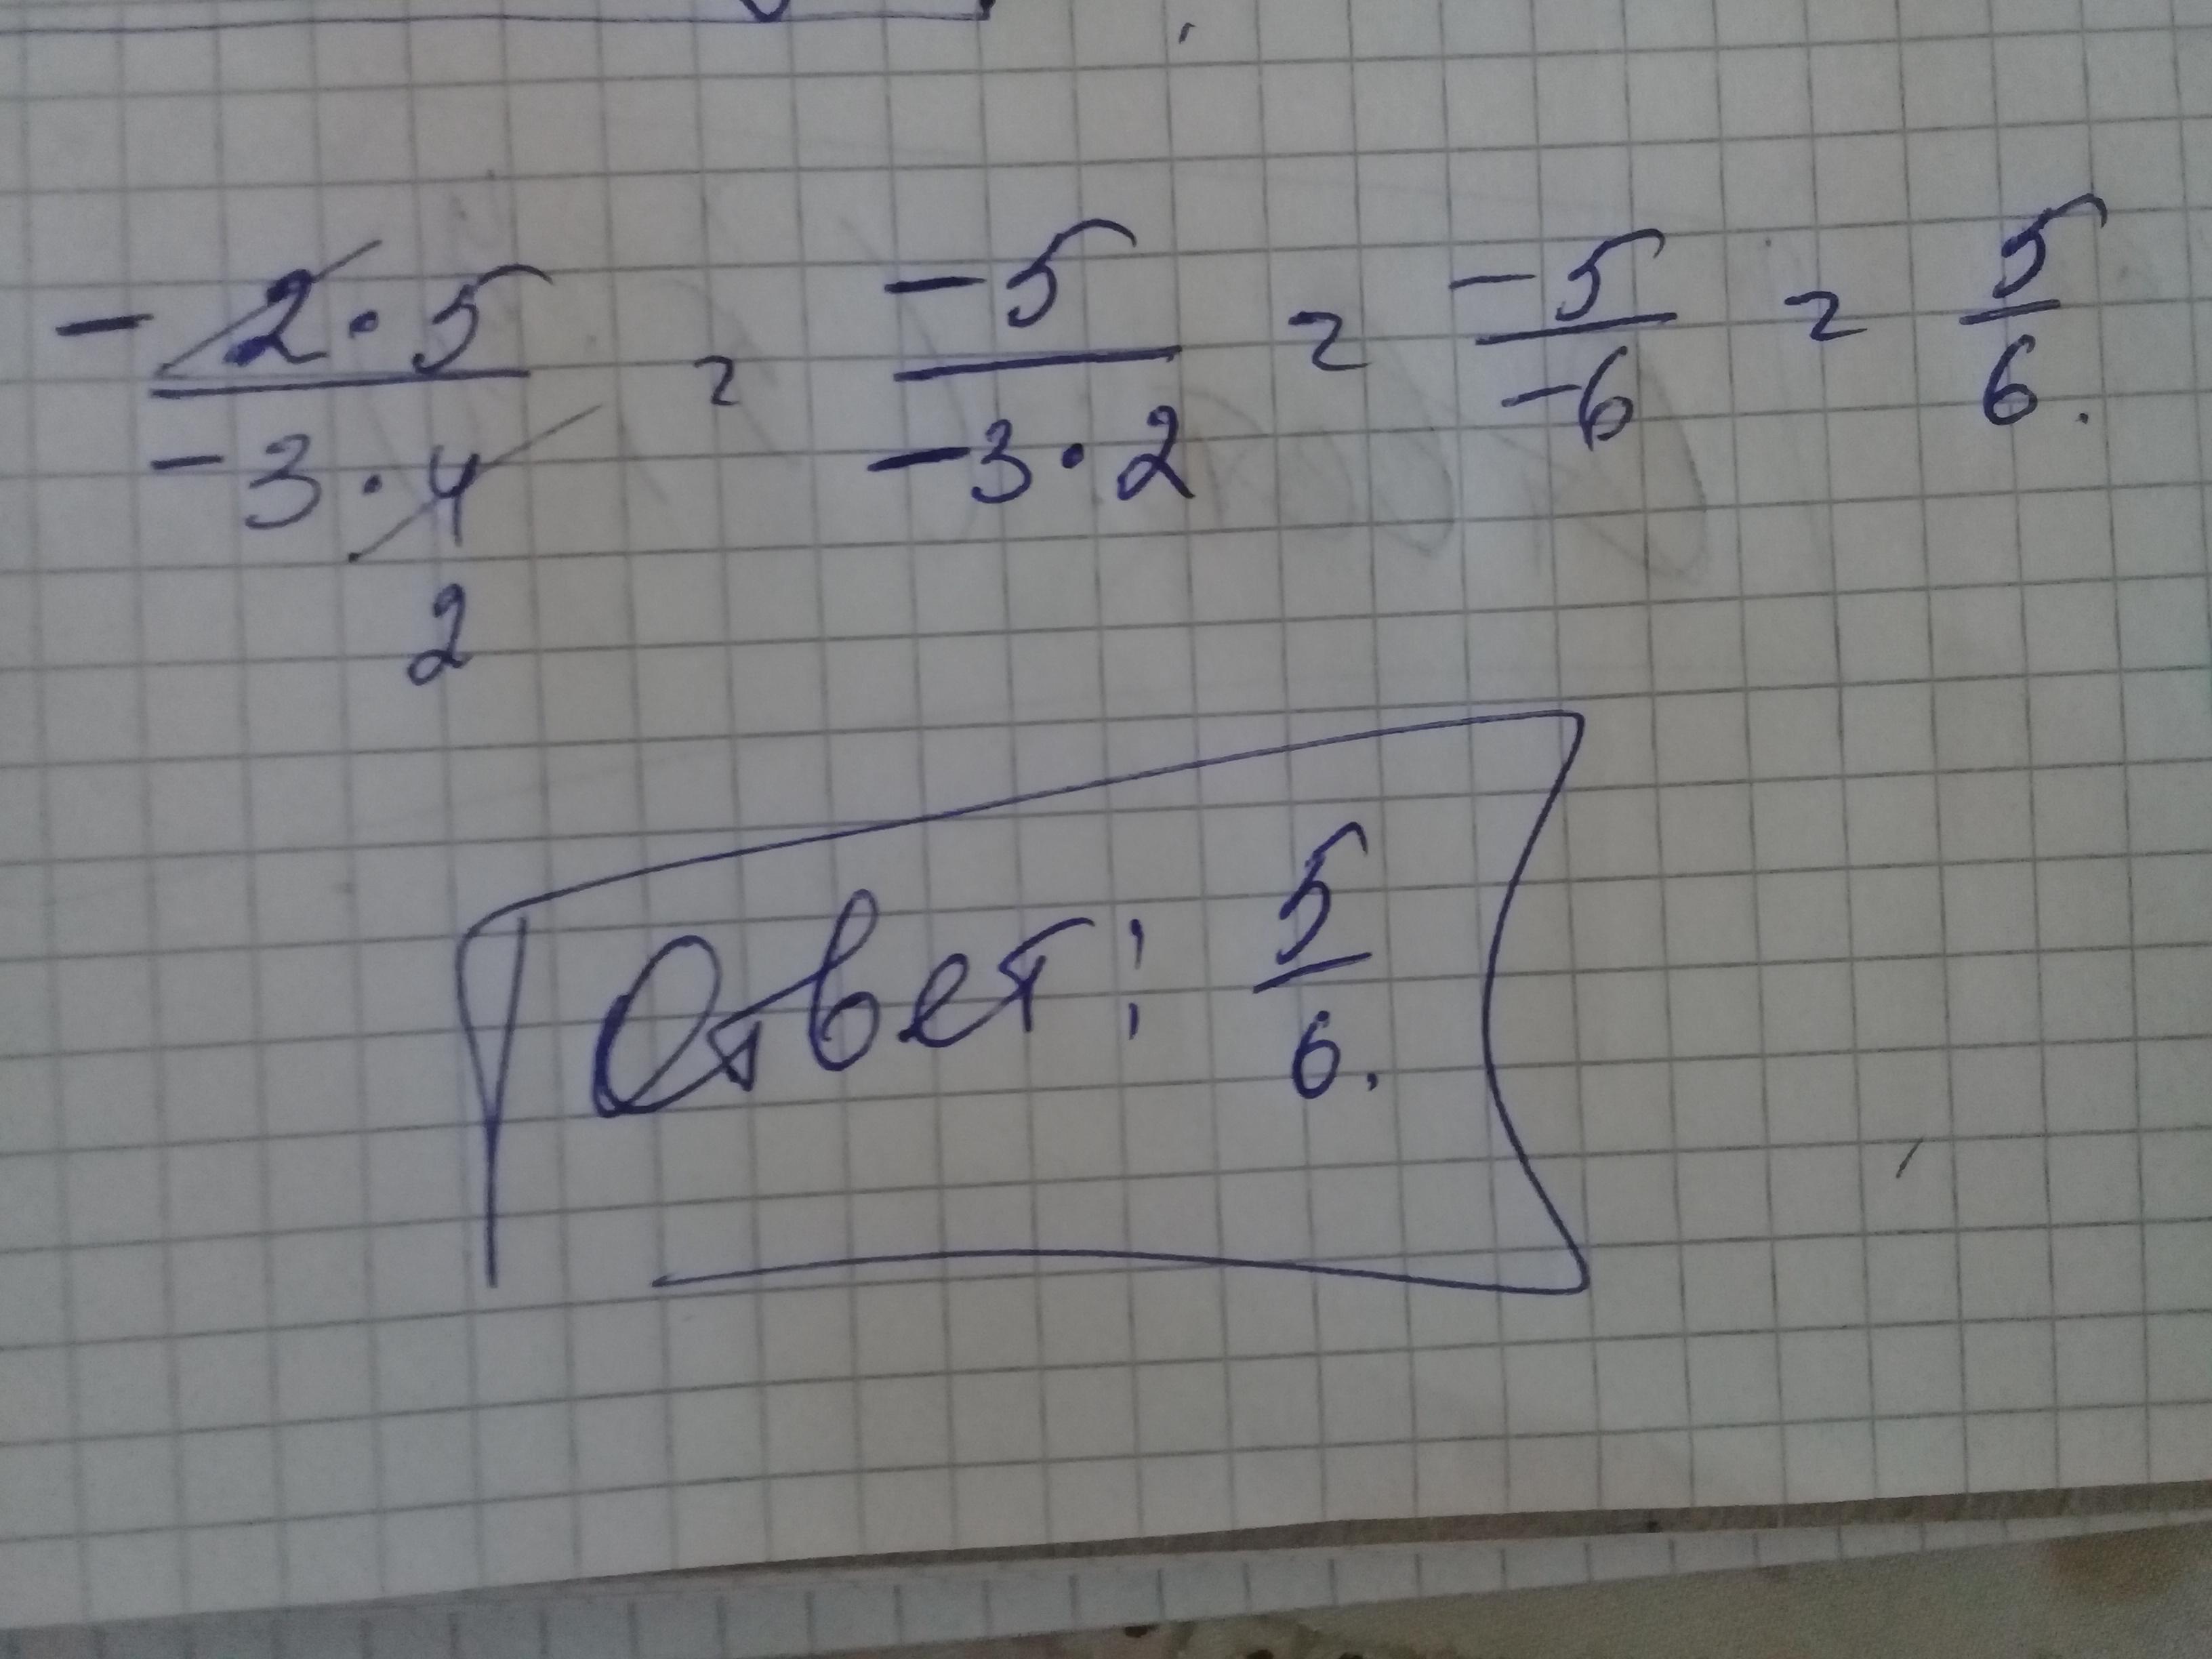 -2·5 / -3·4 = -5 / -3·2 = -5 / -6 = 5 / 6.
2
Ответ: 5 / 6.